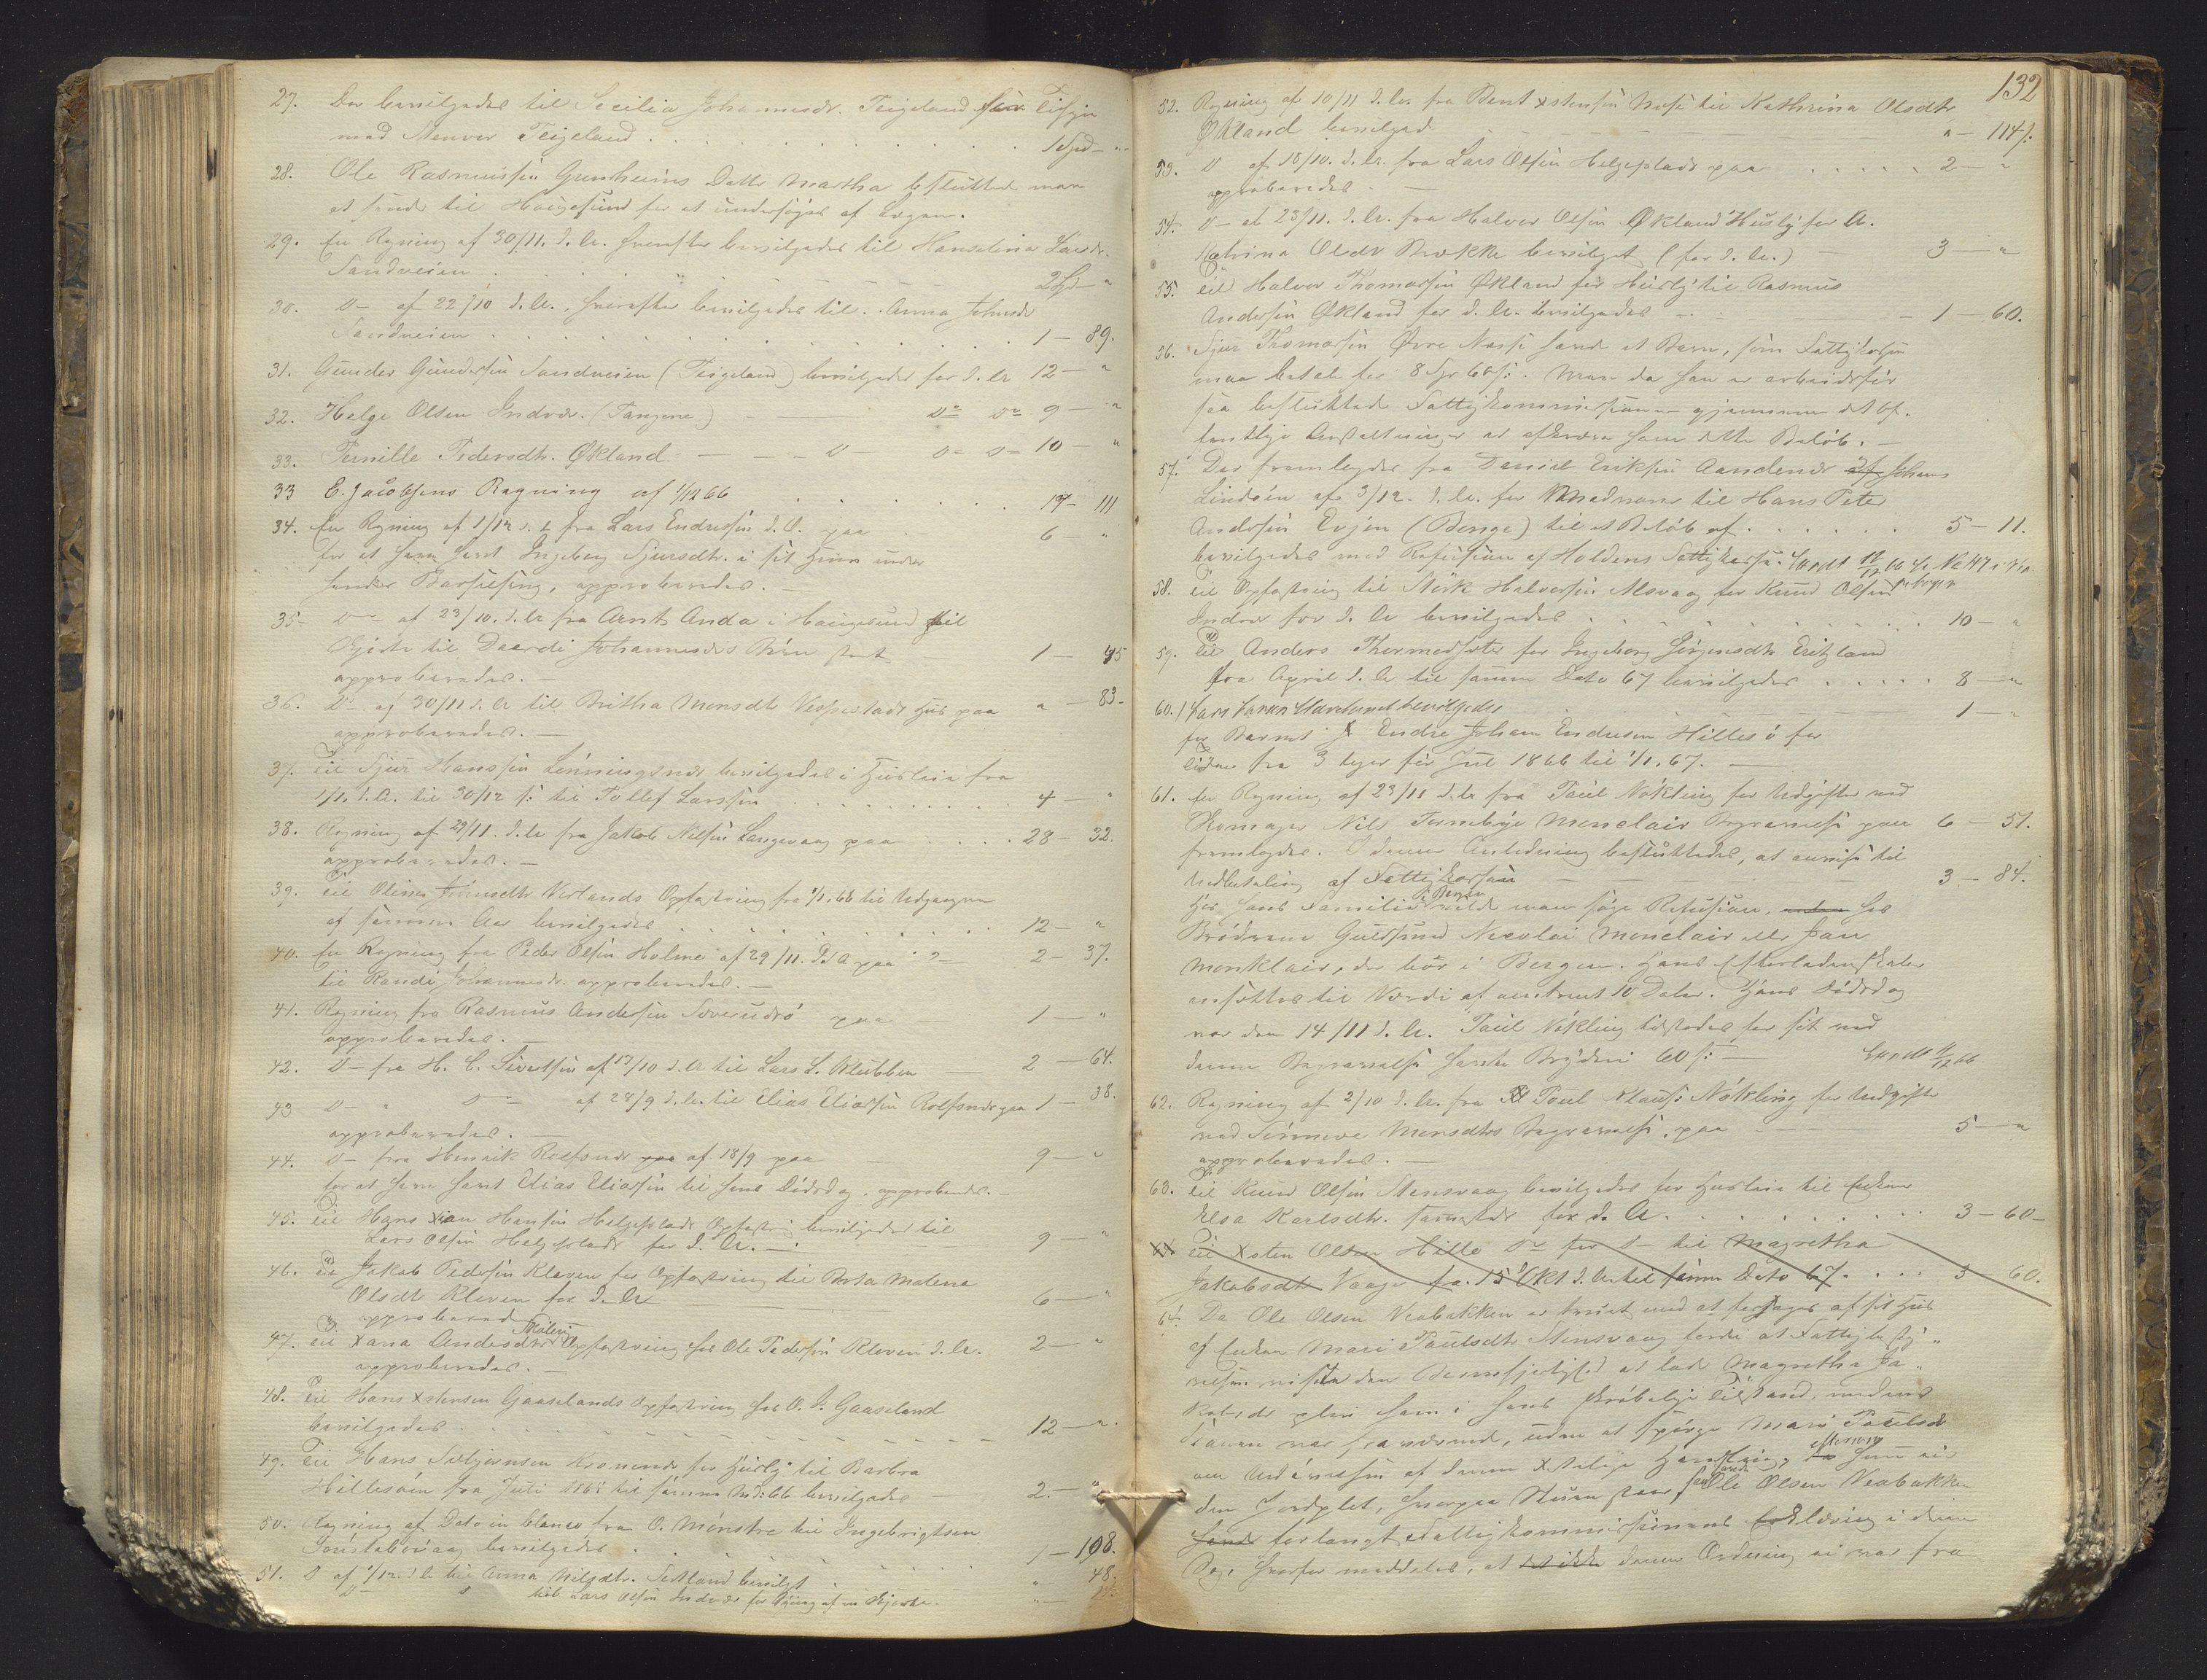 27. Der bevilgedes til Secilia Johannesdr. Teigeland hia Eifgin
med Stenver Teigeland . . . . . . . . 1 Spd — "
28. Ole Rasmussen Grønheims Datter Martha besluttede man
at sende til Haugesund for at undersøges af Lægen.
29. En Regning af 30/11. d. Ar. hvorefter bevilgedes til Hanselina Larsdr.
Sandveien . . . . . . 2 Spd — "
30. D— af 22/10 d. Ar., hvorefter bevilgedes til Anna Johnsdr
Sandveien . . . . . . . 1 — 89.
31. Gunder Gundersen Sandveien (Teigeland) bevilgedes for d. Ar 12 — "
32. Helge Olsen Indvær. (Tangene) Do Do 9 — "
33. Pernille Pedersdtr. Økland — — — D — D— D— 10 — "
33 E. Jacobsens Regning af 1/12 66 . . . . 17 — 111
34. En Regning af 1/12 d. A. fra Lars Endresen d. O. paa 6 — "
for at have havt Ingeborg Sjursdtr. i sit Huus under
hendes Barselseng, approberedes. —
35 D— af 23/10. d. Ar fra Arnt Anda i Haugesund til
Skjørte til Daardi Johannesdrs Børn stort 1 — 45
approberedes. —
36. D— af 30/11 d. Ar til Britha Monsdtr Vespestads Huus paa " — 83.
approberedes. —
37. Til Sjur Hanssen Lønningsnes bevilgedes i Huusleie fra
1/1. d. A. til 30/12 s: til Tollef Larssen . . . . . . . . . 4 — "
38. Regning af 29/11. d. Ar fra Jakob Nilsen Langevaag paa . . . . 28 — 32.
approberedes. —
39. Til Oline Johnsdtr Verlands Opfostring fra 1/1. 66 til Udgangen
af samme Aar bevilgedes . . . . . . . . . 12 — "
40. En Regning fra Peder Olsen Holme af 29/11. d. A. paa 2 — 37.
til Randi Johannesdr. approberedes. —
41. Regning fra Rasmus Andersen Sverudrø paa — 1 — "
approberedes. —
42. D— fra H. C. Sivertsen af 17/10 d. Ar til Lars L. Klubben — 2 — 64.
43 D— " D— af 28/9 d. Ar. til Elias Eliassen Rolfsnes paa 1 — 38.
approberedes. —
44. D— fra Henrik Rolfsnes paa af 18/9 paa — 9 — "
for at have havt Elias Eliassen til hans Dødsdag. approberedes. —
45. Til Hans Xtian Hansen Helgesplads Opfostring bevilgedes til
Lars Olsen Helgesplads for d. Ar. — 9 — "
46. Til Jakob Pedersen Kleven for Opfostring til Berta Malena
Olsdtr Kleven for d. Ar 6 — "
approberedes
47. Til Xana Andersdtr Mølerø Opfostring hos Ole Pedersen Kleven d. Ar. 2 — "
approberedes. —
48. Til Hans Xstensen Gaaselands Opfostring hos O. J. Gaaseland
bevilgedes . . . . . . . . . 12 — "
49. Til Hans Sebjørnsen Kronenes for Huusly til Barbra
Hillesøen fra Juli 1865 til samme Md: 66 bevilgedes — 2 — "
50. Regning af Dato in blanco fra O. Mønstre til Ingebrigtsen
bevilgedes . . . . 1 — 108.
51. D af 1/12. d. Ar til Anna Nilsdtr. Setland bevilgt . . . " — 48.
D— s til Lars Olsen Indvær for Syning af en Skjorte. " —
132
52. Regning af 10/11 d. Ar. fra Bent Xstensen Mose til Kathrina Olsdtr
Økland bevilged " — 114 s.
53. D af 18/10. d. Ar. fra Lars Olsen Helgesplads paa . . . . . 2 — "
approberedes. —
54. D— af 23/11. d. Ar. fra Halvor Olsen Økland Huusly for A.
Katrina Olsdr Brekke bevilget (for d. Ar.) — 3 — "
55. Til Halvor Thomassen Økland for Huusly til Rasmus
Andersen Økland for d. Ar. bevilgedes — . . — 1 — 60.
56. Sjur Thomassen Øvre Næsse havde et Barn, som Fattigkassen
maa betale for 8 Spr 60 s:. Men da han er arbeidsfør
saa besluttede Fattigkommissionen gjennem det of-
fentlige Anstaltninger at afkræve ham dette Beløb. —
57. Der fremlagdes fra Daniel Eriksen Aandenes af Johans
Lindøen af 3/12. d. Ar. for Madvarer til Hans Peter
Andersen Evjen (Benge) til et Beløb af . . . . . . 5 — 11.
bevilgedes med Refusion af Moldens Fattigkasse.
58. Til Opfostring til Mørk Halvorsen Alsvaag for Knud Olsen
Indvær for d. Ar bevilgedes . . . . . . . 10 — "
59. Til Anders Thormodsæter for Ingeborg Jørgensdtr Eritzland
fra April d. Ar til samme Dato 67 bevilgedes . . . . . 8 — "
60. Lars Larsen Stavelund bevilgedes 1 — "
for Barnet Endre Johan Endresen Hillesø for
Tiden fra 3 Uger før Jul 1866 til 1/1. 67. —
61. En Regning af 23/11 d. Ar fra Poul Nøkling for Udgifter ved
Skomager Nils Tornebye Monclair Begravelse paa 6 — 51.
fremlagdes. I denne Anledning besluttedes, at anvise til
Udbetaling af Fattigkassen — — — — 3 — 84.
Hos hans Familie i Bergen vilde man søge Refusion, uden hos
Brødrene Guldsmed Nicolai Monclair eller Jan
Monklair, der bor i Bergen. Hans Efterladenskaber
ansættes til Værdi af omtrent 10 Daler. Hans Dødsdag
var den 14/11 d. Ar. Poul Nøkling tilstodes for sit ved
denne Begravelse havte Bryderi 60 s: —
62. Regning af 2/10 d. Ar. fra Poul Klaus: Nøkling for Udgifter
ved Sønneve Monsdtrs Begravelse, paa — — — 5 — "
approberedes. —
63. Til Knud Olsen Stensvaag bevilgedes for Huusleie til Enken
Elsa Karlsdtr. sammesteds for d. A. . . . . . . . 3 — 60 —
64 Til Xsten Olsen Hille D— for D— til Magretha
Jakobsdtr Vaage fra 15 Okt d. Ar til samme Dato 67 . . . . 3 60.
64. Da Ole Olsen Veabakken er truet med at forjages af sit Huus
af Enken Mari Poulsdtr Stensvaag fordi at Fattigbesty-
relsen viste den Barmhjertighed at lade Magretha Ja-
kobsdr pleie ham i hans skrøbelige Tilstand, medens
Konen var fraværende, uden at spørge Mari Poulsdr
om Udøvelsen af denne Xstelige Handling, eftersom hun eier
den Jordplet, hvorpaa Stuen staar, havde Ole Olsen Veabakken
havde forlangt Fattigkommissionens Erklæring i denne
Sag, hvorfor meddeles, at det ikke denne Ordning ei var fra